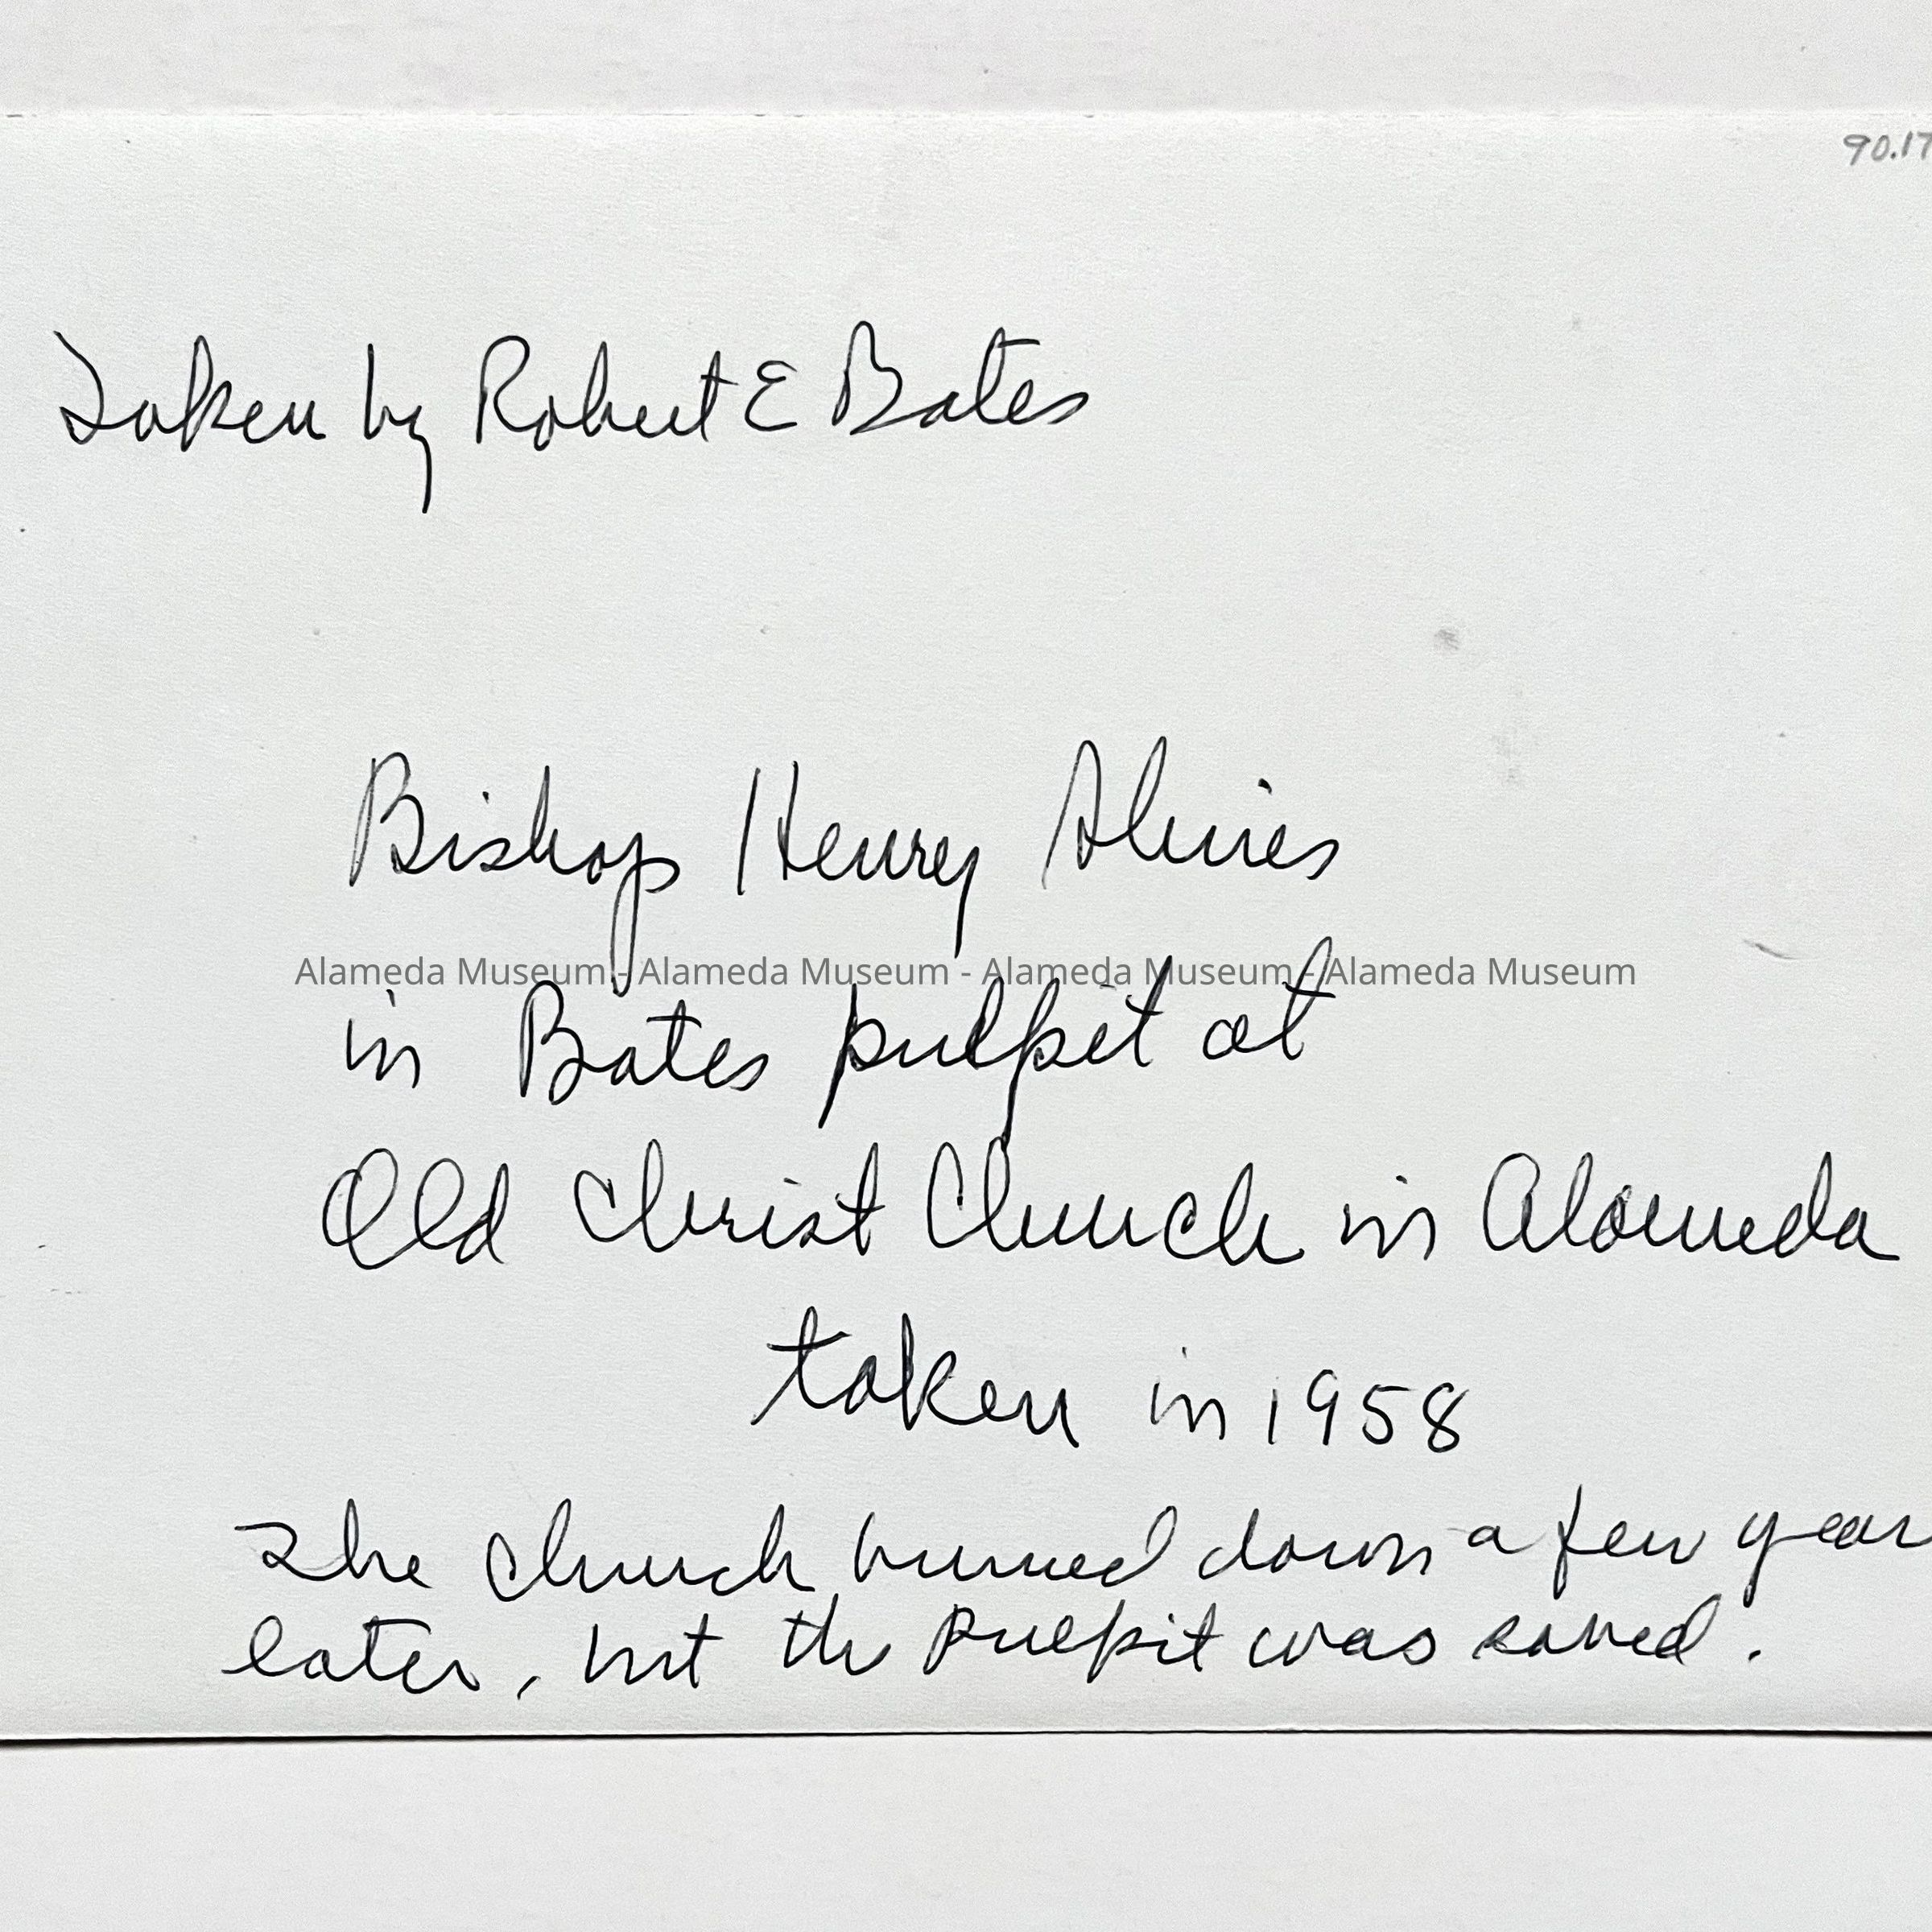 90.17
Taken by Robert E Bates
Bishop Henry Shires
Alameda Museum - Alameda Museum - Alameda Museum - Alameda Museum
in Bates pulpit at
Old Christ Church in Alameda
taken in 1958
The church burned down a few year
later, but the pulpit was saved.